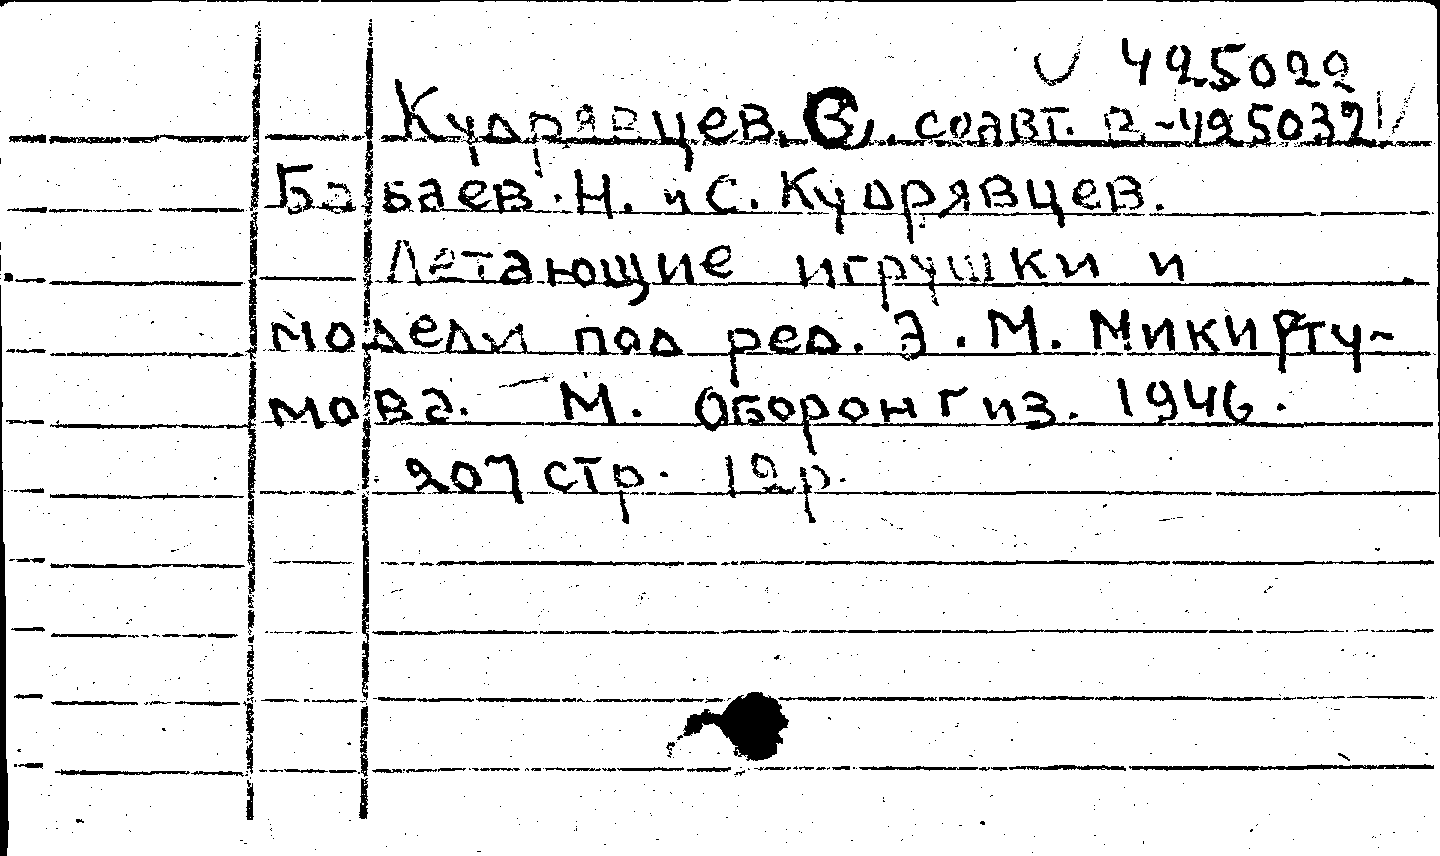 V 425022
Кудрявцев, С., соавт. В-425032
Бабаев Н. и С. Кудрявцев.
Летающие игрушки и
модели под ред. Э. М. Микирту-
мова. М. Оборонгиз. 1946.
207 стр. 12 р.